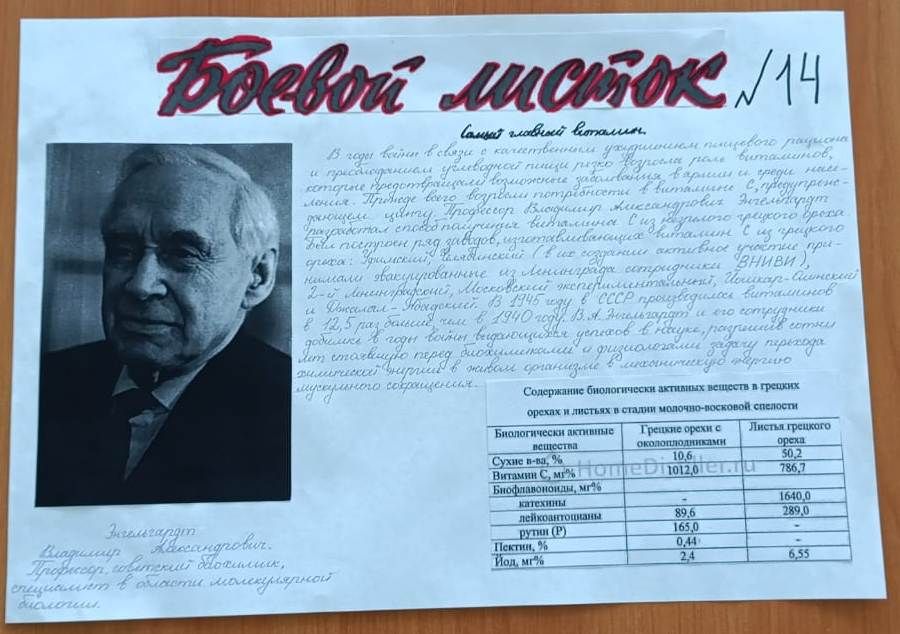 Боевой листок №14
Самый главный витамин.
В годы войны в связи с качественным ухудшением пищевого рациона
и преобладанием углеводной пищи резко возросла роль витаминов,
которые предотвращали возможные заболевания в армии и среди насе-
ления. Прежде всего возросли потребности в витамине С, предупреж-
дающем цингу. Профессор Владимир Александрович Энгельгардт
разработал способ получения витамина С из незрелого грецкого ореха.
Был построен ряд заводов, изготавливающих витамин С из грецкого
ореха: Уфимский, Челябинский (в их создании активное участие при-
нимали эвакуированные из Ленинграда сотрудники ВНИВИ),
2-й Ленинградский, Московский экспериментальный, Йошкар-Олинский
и Джалал-Абадский. В 1945 году в СССР производилось витаминов
в 12,5 раз больше, чем в 1940 году. В.А. Энгельгардт и его сотрудники
добились в годы войны выдающихся успехов в науке, разрешив сотни
лет стоявшую перед биохимиками и физиологами задачу перехода
химической энергии в живом организме в механическую энергию
мускульного сокращения.
Содержание биологически активных веществ в грецких
орехах и листьях в стадии молочно-восковой спелости
Биологически активные вещества Грецкие орехи с околоплодниками Листья грецкого ореха
Сухие в-ва, % 10,6 50,2
Витамин С, мг% 1012,0 786,7
Биофлавоноиды, мг%
катехины - 1640,0
лейкоантоцианы 89,6 289,0
рутин (Р) 165,0 -
Пектин, % 0,44 -
Йод, мг% 2,4 6,55
Энгельгардт
Владимир Александрович.
Профессор, советский биохимик,
специалист в области молекулярной
биологии.